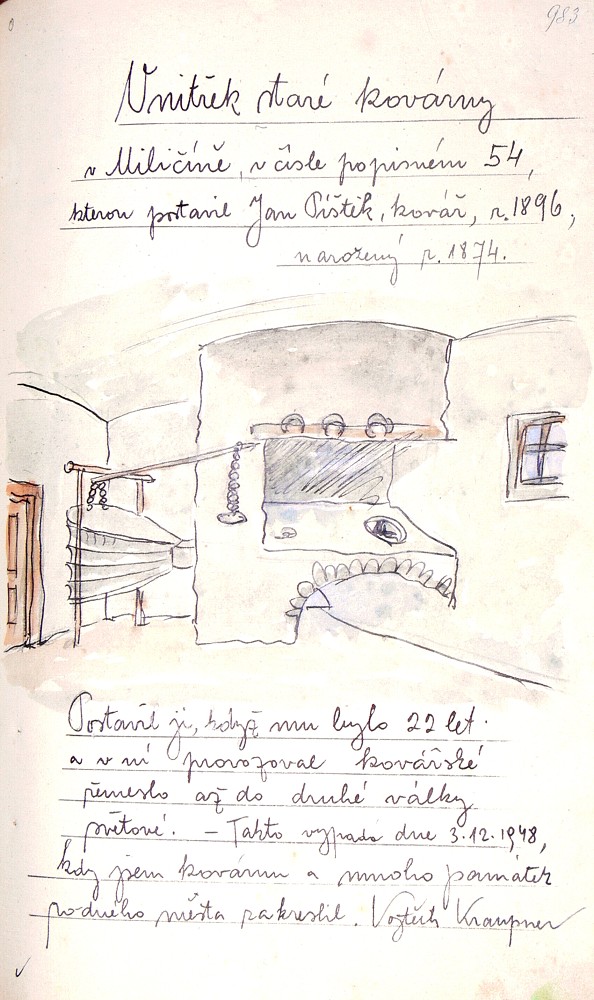 983
Vnitřek staré kovárny
v Miličíně, v čísle popisném 54,
kterou postavil Jan Píštěk, kovář, r. 1896,
narozený r. 1874.
Postavil ji, když mu bylo 22 let.
a v ní provozoval kovářské
řemeslo až do druhé války
světové. - Takto vypadá dne 3.12.1948,
kdy jsem kovárnu a mnoho památek
rodného města zakreslil. Vojtěch Kraupner